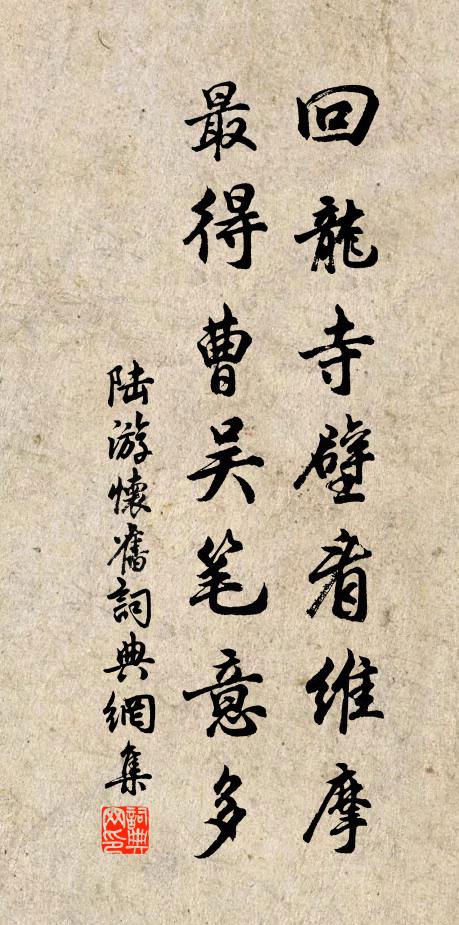 回龍寺壁看維摩
最得曹吴笔意多
陆游懷舊詞典網集
詞典网印